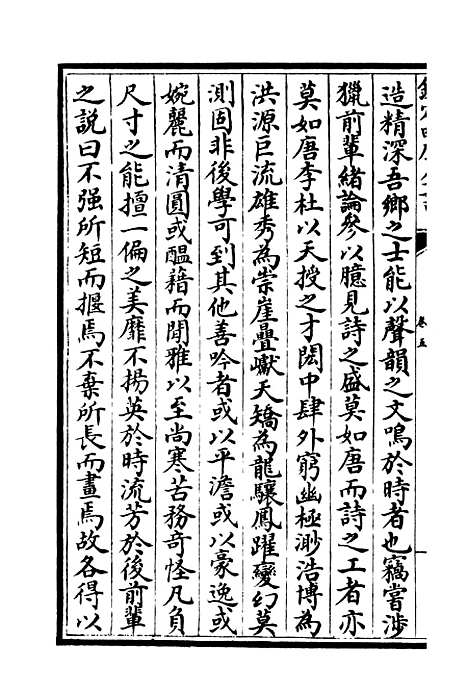 造精深吾鄉之士能以聲韻之文鳴於時者也竊嘗涉
獵前輩緒論參以臆見詩之盛莫如唐而詩之工者亦
莫如唐李杜以天授之才閎中肆外窮幽極渺浩博為
洪源巨流雄秀為崇崖疊巘天矯為龍驤鳳躍變幻莫
測固非後學可到其他善吟者或以平澹或以豪逸或
婉麗而清圓或醖藉而閒雅以至尚寒苦務奇怪凡負
尺寸之能擅一偏之美靡不揚英於時流芳於後前輩
之說曰不强所短而揠焉不棄所長而畫焉故各得以
卷五